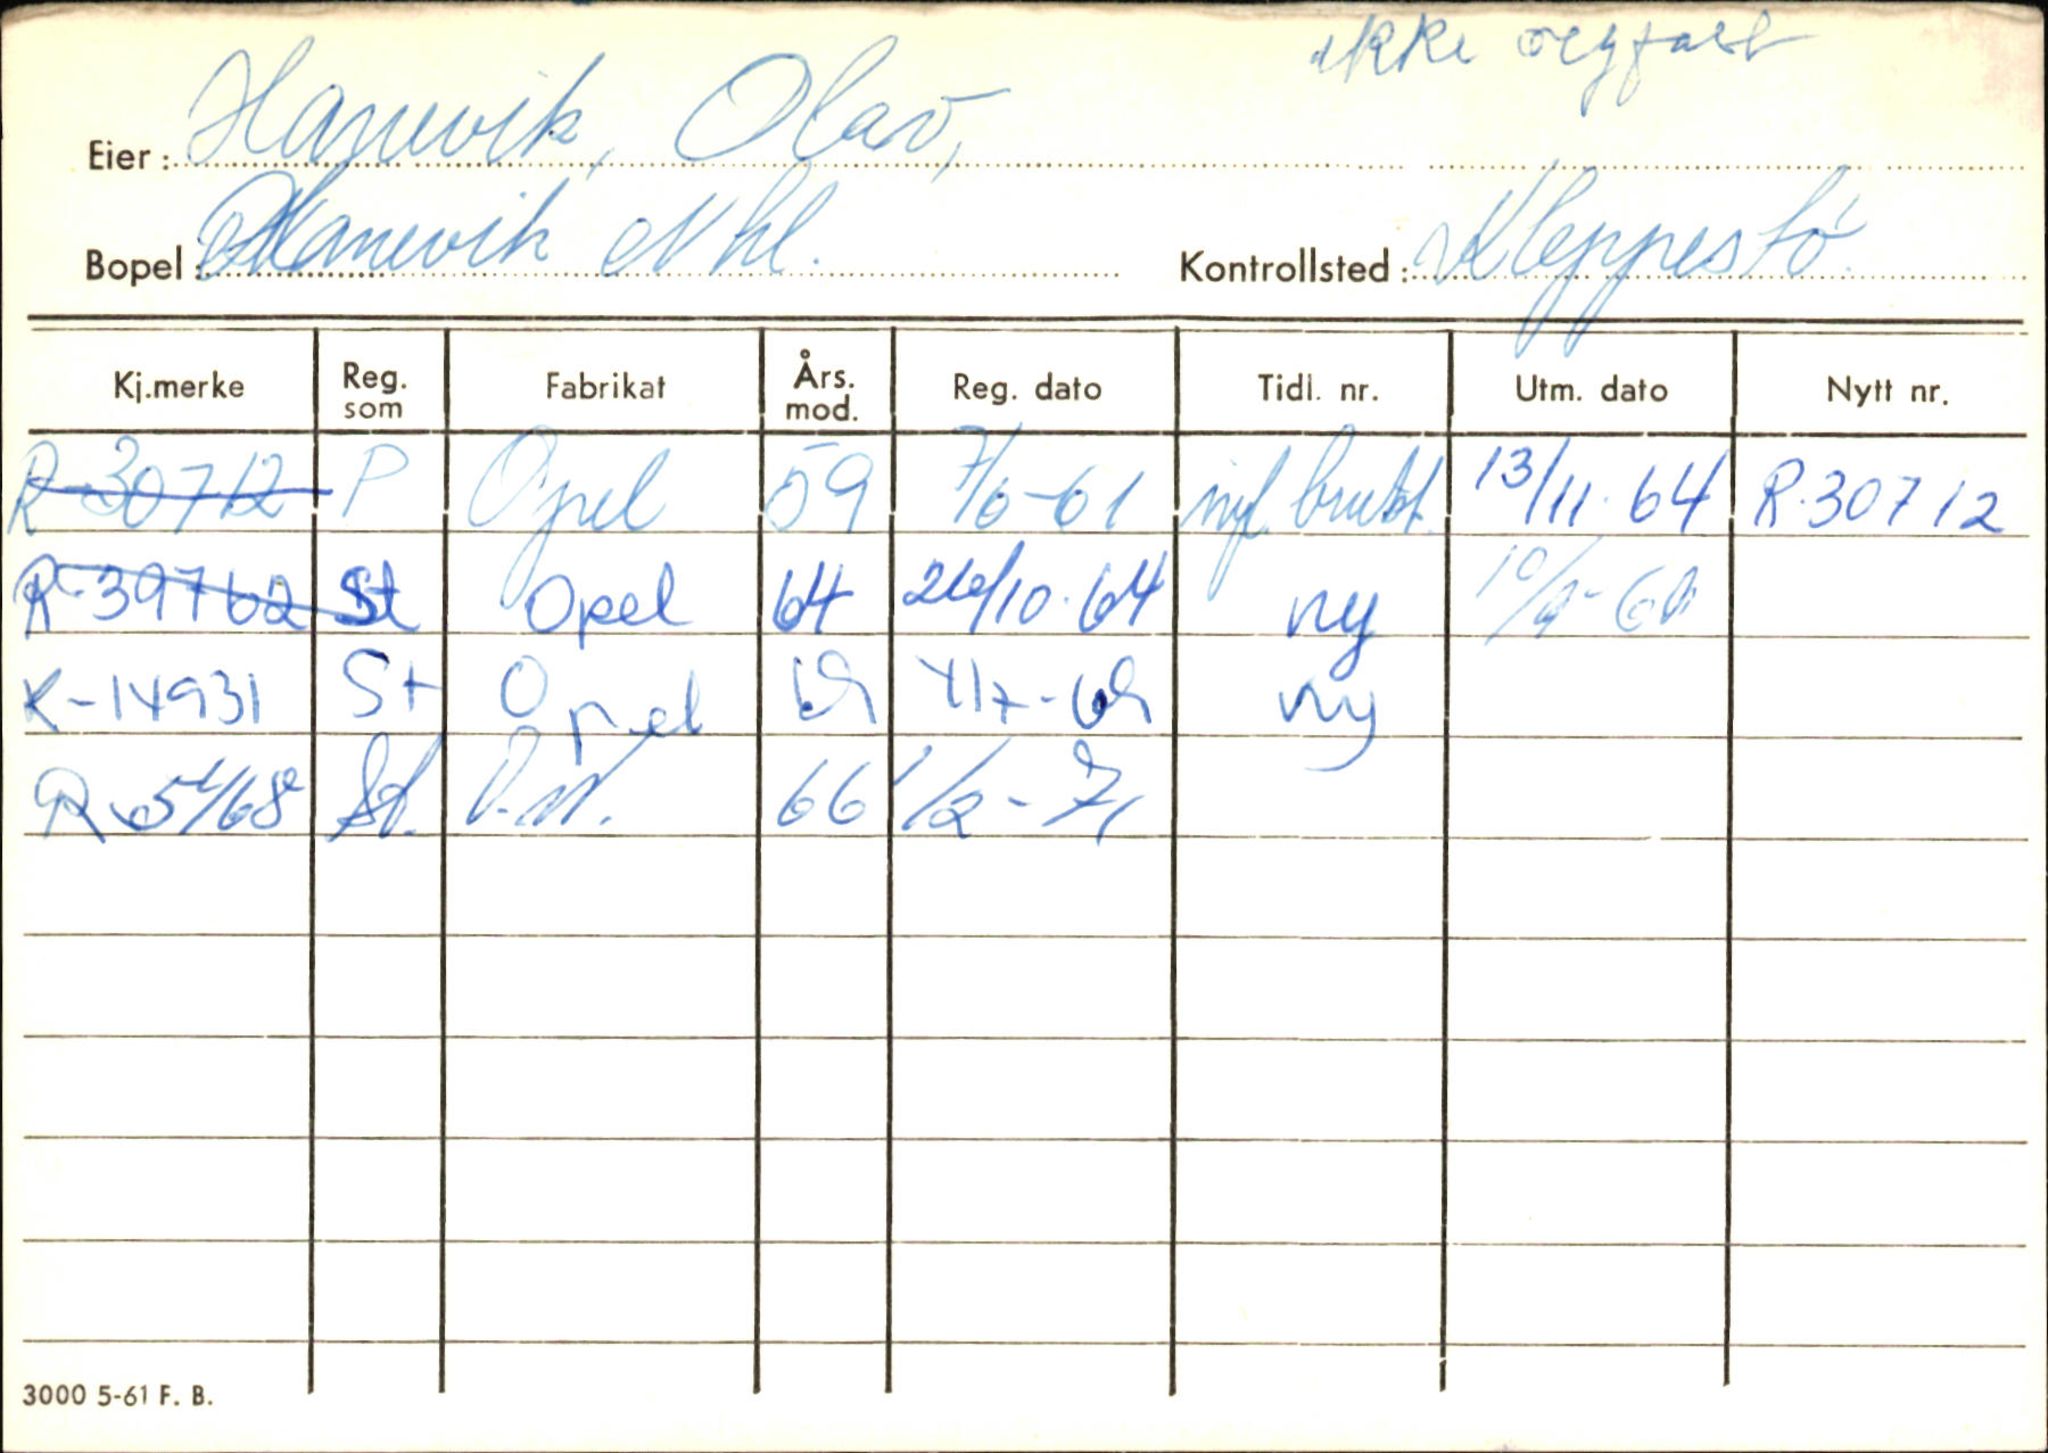 ikke
Eier: Hanevik, Olav,
Bopel: Hanevik Nhl. Kontrollsted: Kleppestø.
Kj.merke Reg. som Fabrikat Års. mod. Reg. dato Tidl. nr. Utm. dato Nytt nr.
R-30712 P Opel 59 7/6-61 brukt. 13/11-64 R-30712
R-39762 St Opel 64 26/10-64 ny 10/9-69
R-14931 St Opel 69 4/7-69 ny
St. 66 1/2-71
3000 5-61 F. B.